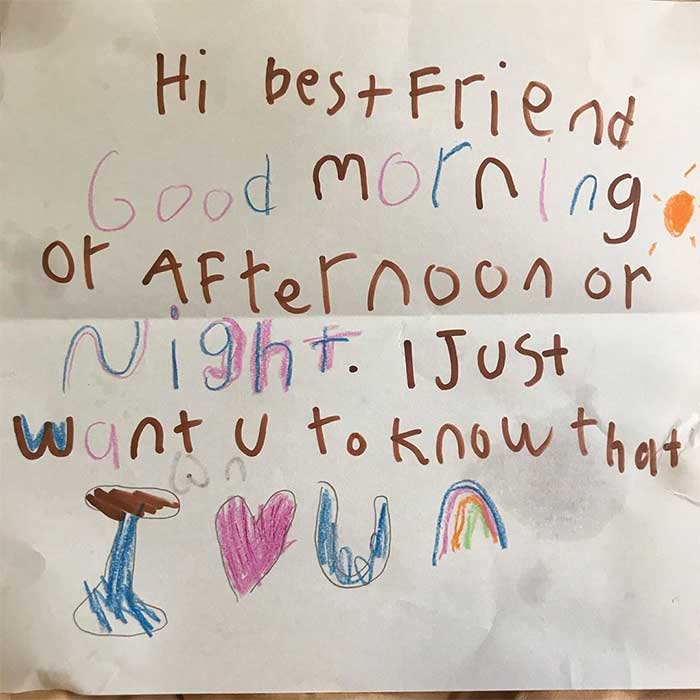 Hi best Friend
Good morning
or AFternoon or
Night. I Just
want u to know that
I ♥ U